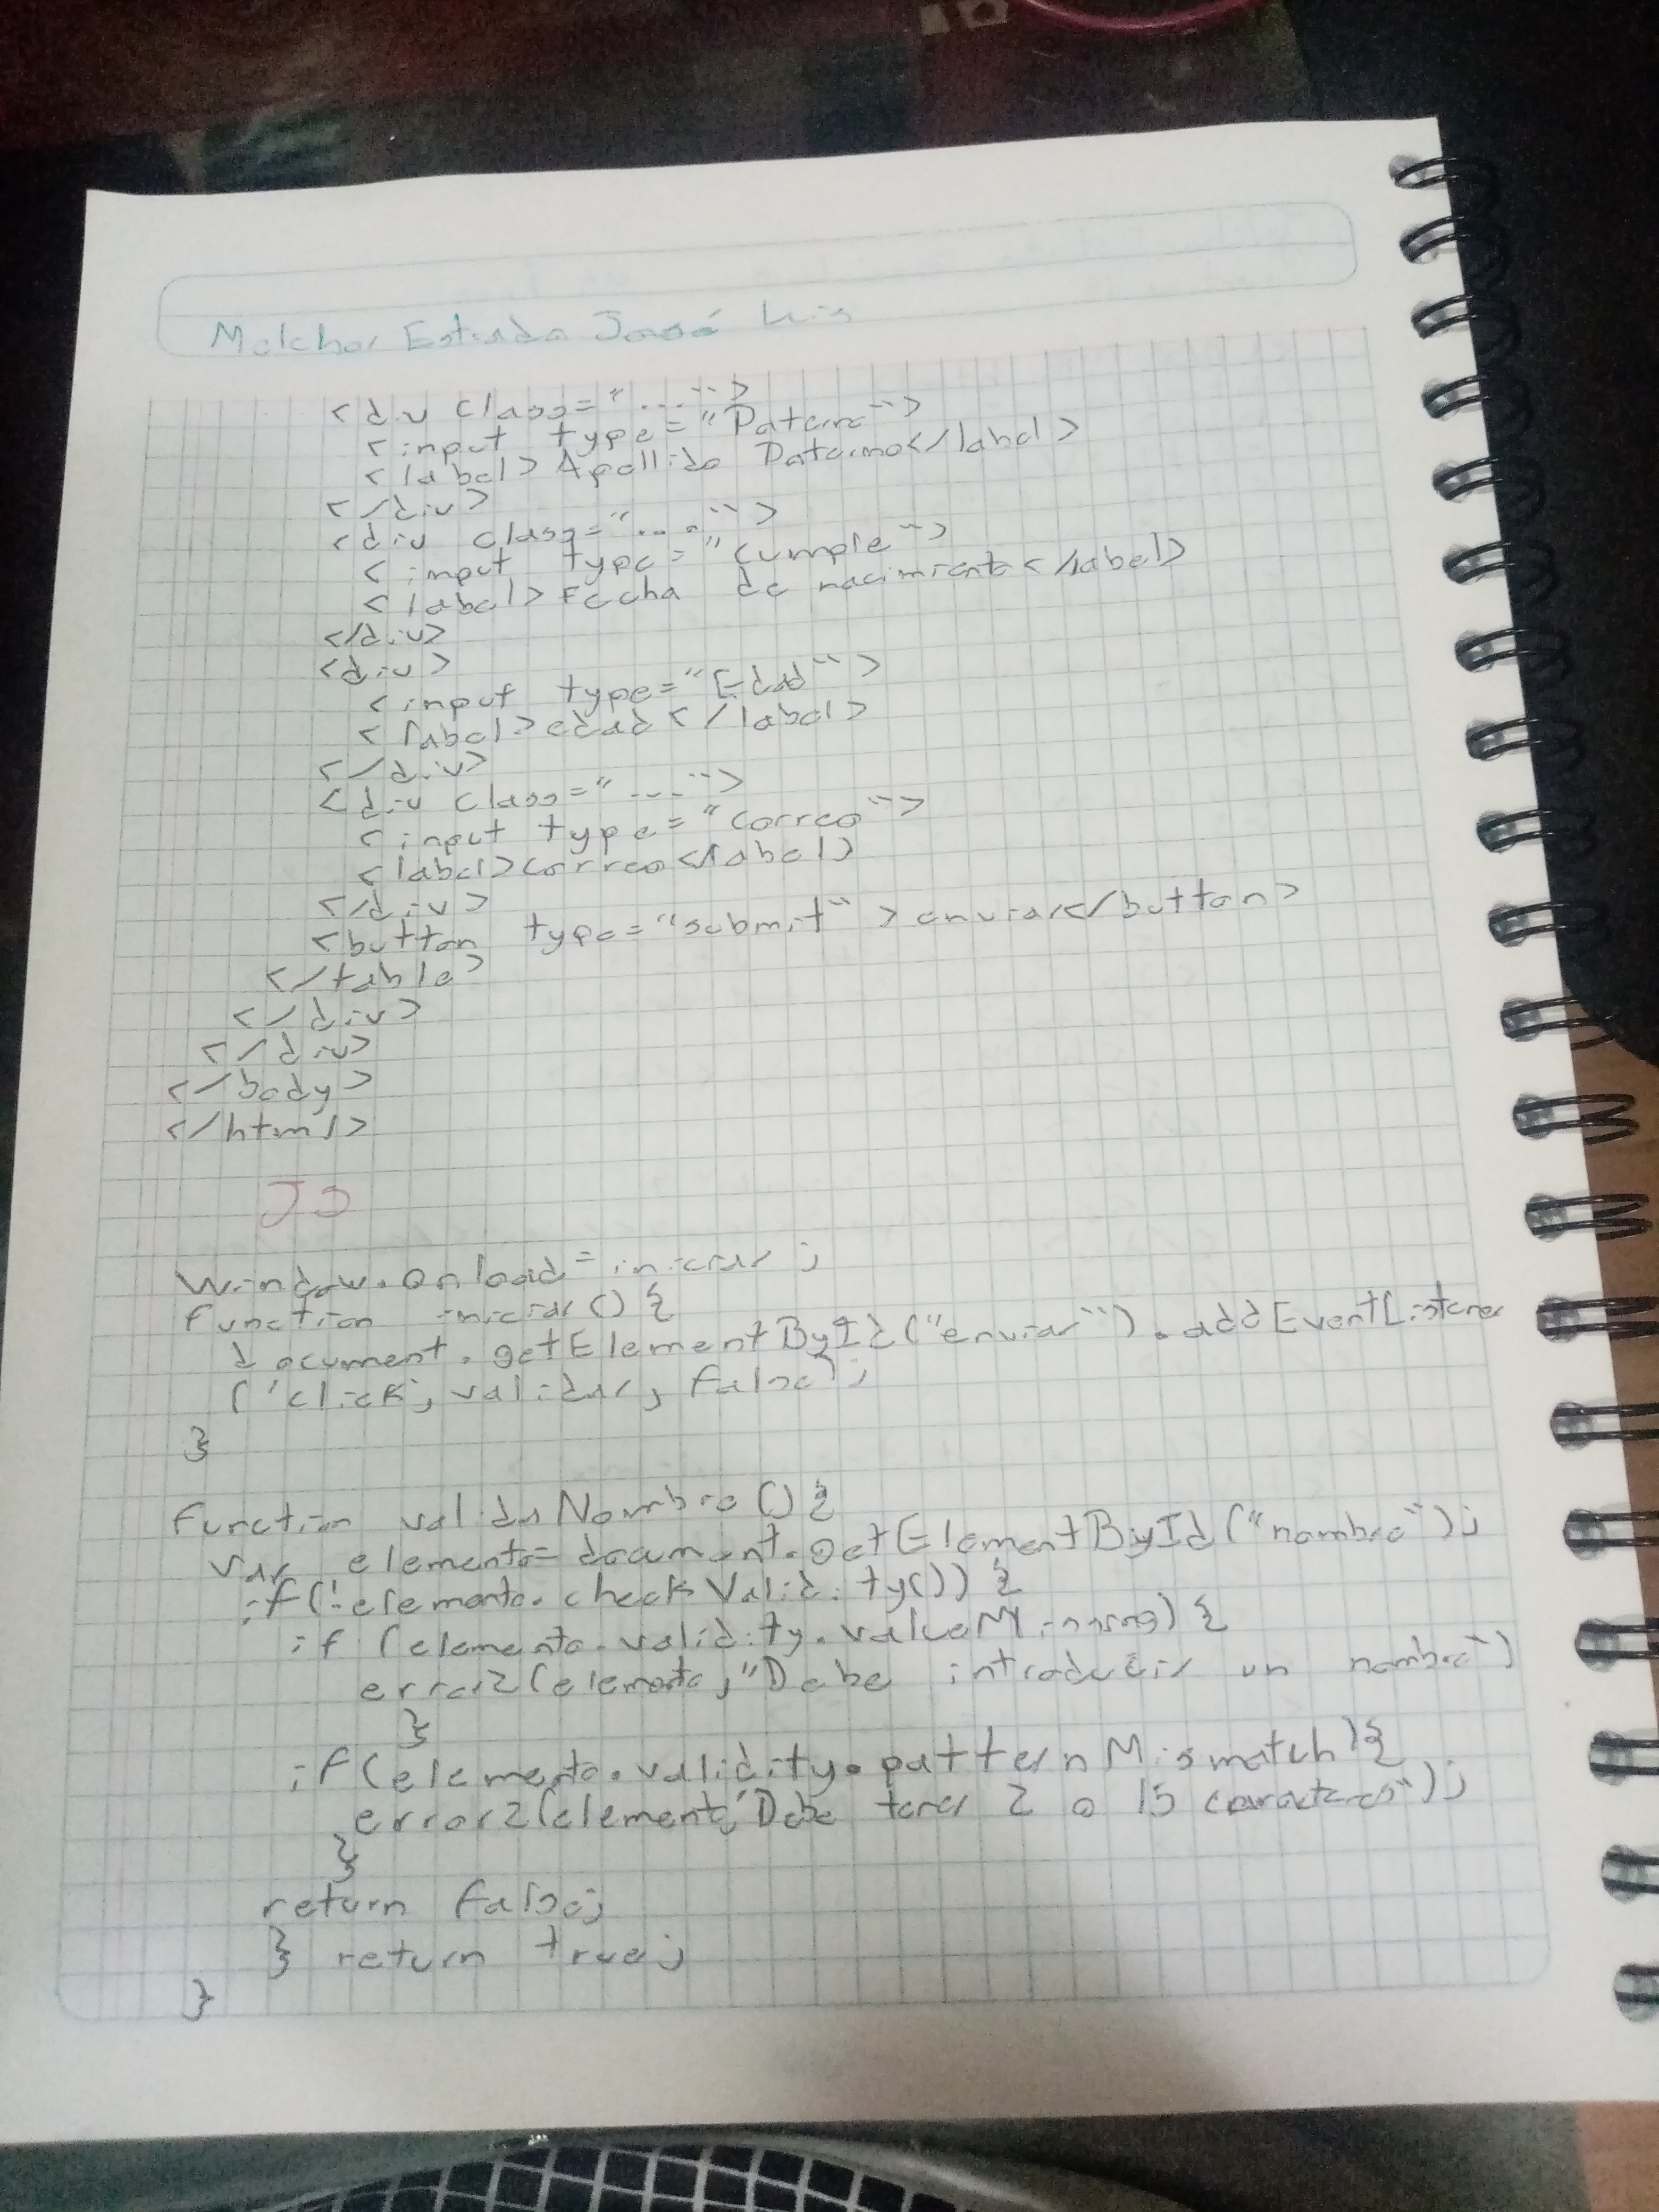 Melchor Estrada José Luis
<div class="....">
<input type="Paterno">
<label>Apellido Paterno</label>
</div>
<div class="....">
<input type="cumple">
<label>Fecha de nacimiento</label>
</div>
<div>
<input type="Edad">
<label>edad</label>
</div>
<div class="....">
<input type="correo">
<label>correo</label>
</div>
<button type="submit">enviar</button>
</table>
</div>
</div>
</body>
</html>
JS
Window.onload=iniciar;
function iniciar() {
document.getElementById("enviar").addEventListener
('click', validar, false);
}
function validarNombre() {
var elemento=document.getElementById("nombre");
if(!elemento.checkValidity()) {
if (elemento.validity.valueMissing) {
error2(elemento,"Debe introducir un nombre")
}
if(elemento.validity.patternMismatch){
error2(elemento,"Debe tener 2 a 15 caracteres");
}
return false;
} return true;
}